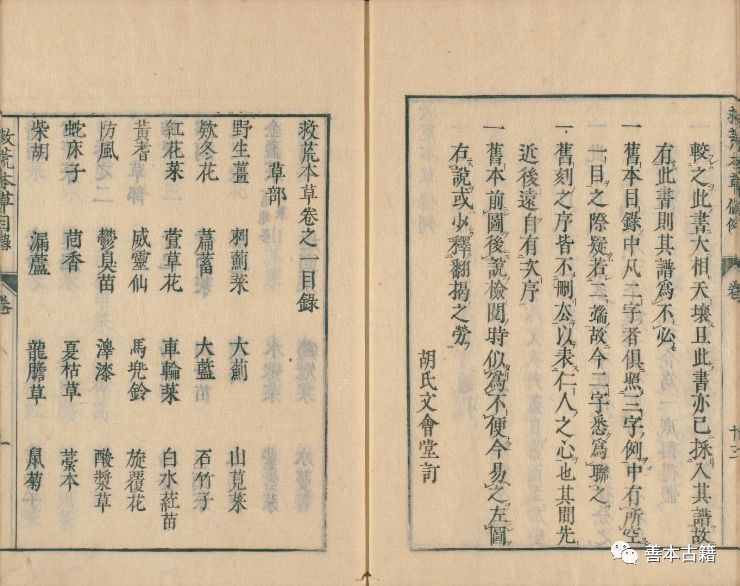 較之此書大相天壤且此書亦已採入其譜故
有此書則其譜爲不必
一舊本目錄中凡二字者俱照三字例中有所空
一目之際疑若二端故今二字悉爲聯之
一舊刻之序皆不刪去以表仁人之心也其間先
近後遠自有次序
一舊本前圖後說檢閱時似爲不便今易之左圖
右說或少釋翻揭之勞
胡氏文會堂訂
救荒本草卷之一目錄
草部
野生薑 刺薊菜 大薊 山莧菜
欵冬花 萹蓄菜 大藍 石竹子
紅花菜 萱草花 車輪菜 白水葒苗
黃耆 威靈仙 馬兜鈴 旋覆花
防風 鬱臭苗 澤漆 酸漿草
蛇床子 茴香 夏枯草 藁本
柴胡 漏蘆 龍膽草 鼠菊
救荒本草目錄 卷一 一
善本古籍